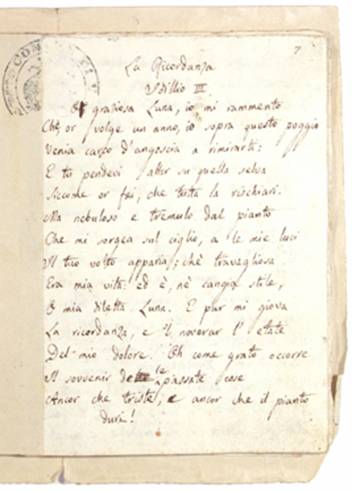 7
La Ricordanza
Idillio III.
O graziosa Luna, io mi rammento
Che, or volge un anno, io sopra questo poggio
Venia carco d'angoscia a rimirarti:
E tu pendevi allor su quella selva
Siccome or fai, che tutta la rischiari.
Ma nebuloso e tremulo dal pianto
Che mi sorgea sul ciglio, a le mie luci
Il tuo volto apparia; chè travagliosa
Era mia vita: ed è, nè cangia stile,
O mia diletta Luna. E pur mi giova
La ricordanza, e 'l noverar l' etate
Del mio dolore. Oh come grato occorre
Il sovvenir de le passate cose
Ancor che triste, e ancor che il pianto
duri!